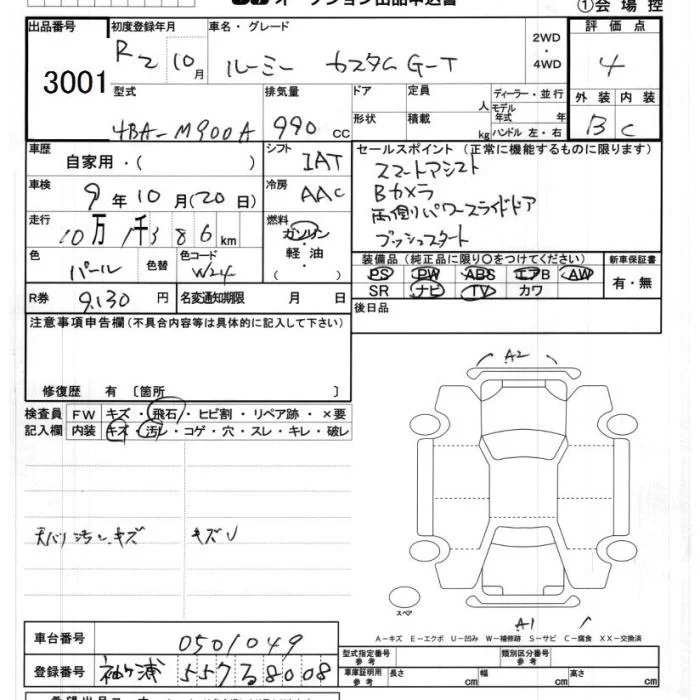 オークション出品申込書 ①会場控
出品番号 初度登録年月 車名・グレード 2WD・4WD 評価点
3001 R2 10月 ルーミー カスタムG-T 4
型式 排気量 ドア 定員 人 ディーラー・並行 外装 内装
4BA-M900A 990cc 形状 積載 kg モデル年式 年 ハンドル 左・右 B C
車歴 自家用・( ) シフト IAT セールスポイント(正常に機能するものに限ります)
車検 9年10月(20日) 冷房 AAC スマートアシスト
Bカメラ
走行 10万1千386km 燃料 ガソリン・軽油・( ) 両側パワースライドドア
プッシュスタート
色 パール 色替 色コード W24 装備品(純正品に限り○をつけてください) 新車保証書
PS PW ABS エアB AW 有・無
SR ナビ TV カワ
R券 9,130円 名変通知期限 月 日 後日品
注意事項申告欄(不具合内容等は具体的に記入して下さい)
修復歴 有〔箇所 〕
A2
検査員 FW キズ・飛石・ヒビ割・リペア跡・×要
記入欄 内装 キズ・汚レ・コゲ・穴・スレ・キレ・破レ
天バリ汚レ、キズ キズU
スペア
A1
A-キズ E-エクボ U-凹み W-補修跡 S-サビ C-腐食 XX-交換済
車台番号 0501049
型式指定番号 参考 類別区分番号 参考
登録番号 袖ヶ浦 557る8008
車庫証明用 参考 長さ cm 幅 cm 高さ cm